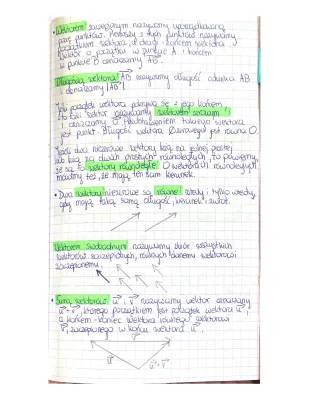 • Wektorem zaczepionym nazywamy uporządkowaną
parę punktów. Pierwszy z tych punktów nazywamy
początkiem wektora, a drugi - końcem wektora
Wektor o początku w punkcie A i końcem
w punkcie B oznaczamy AB.
Długością wektora AB nazywamy długość odcinka AB
i oznaczamy |AB|.
Jeśli początek wektora pokrywa się z jego końcem
to taki wektor nazywamy wektorem zerowym
i oznaczamy 0. Przedstawieniem takiego wektora
jest punkt. Długość wektora zerowego jest równa 0.
Jeżeli dwa niezerowe wektory leżą na jednej prostej
albo leżą na dwóch prostych równoległych, to powiemy,
że są to wektory równoległe. O wektorach równoległych
mówimy też, że mają ten sam kierunek.
• Dwa wektory niezerowe są równe wtedy i tylko wtedy,
gdy mają taką samą długość, kierunek i zwrot.
Wektorem swobodnym nazywamy zbiór wszystkich
wektorów zaczepionych, równych danemu wektorowi
zaczepionemu.
• Sumą wektorów u i v nazywamy wektor oznaczany
u + v, którego początkiem jest początek wektora u,
a końcem - koniec wektora równego wektorowi
v, zaczepionego w końcu wektora u.
v
u
u + v